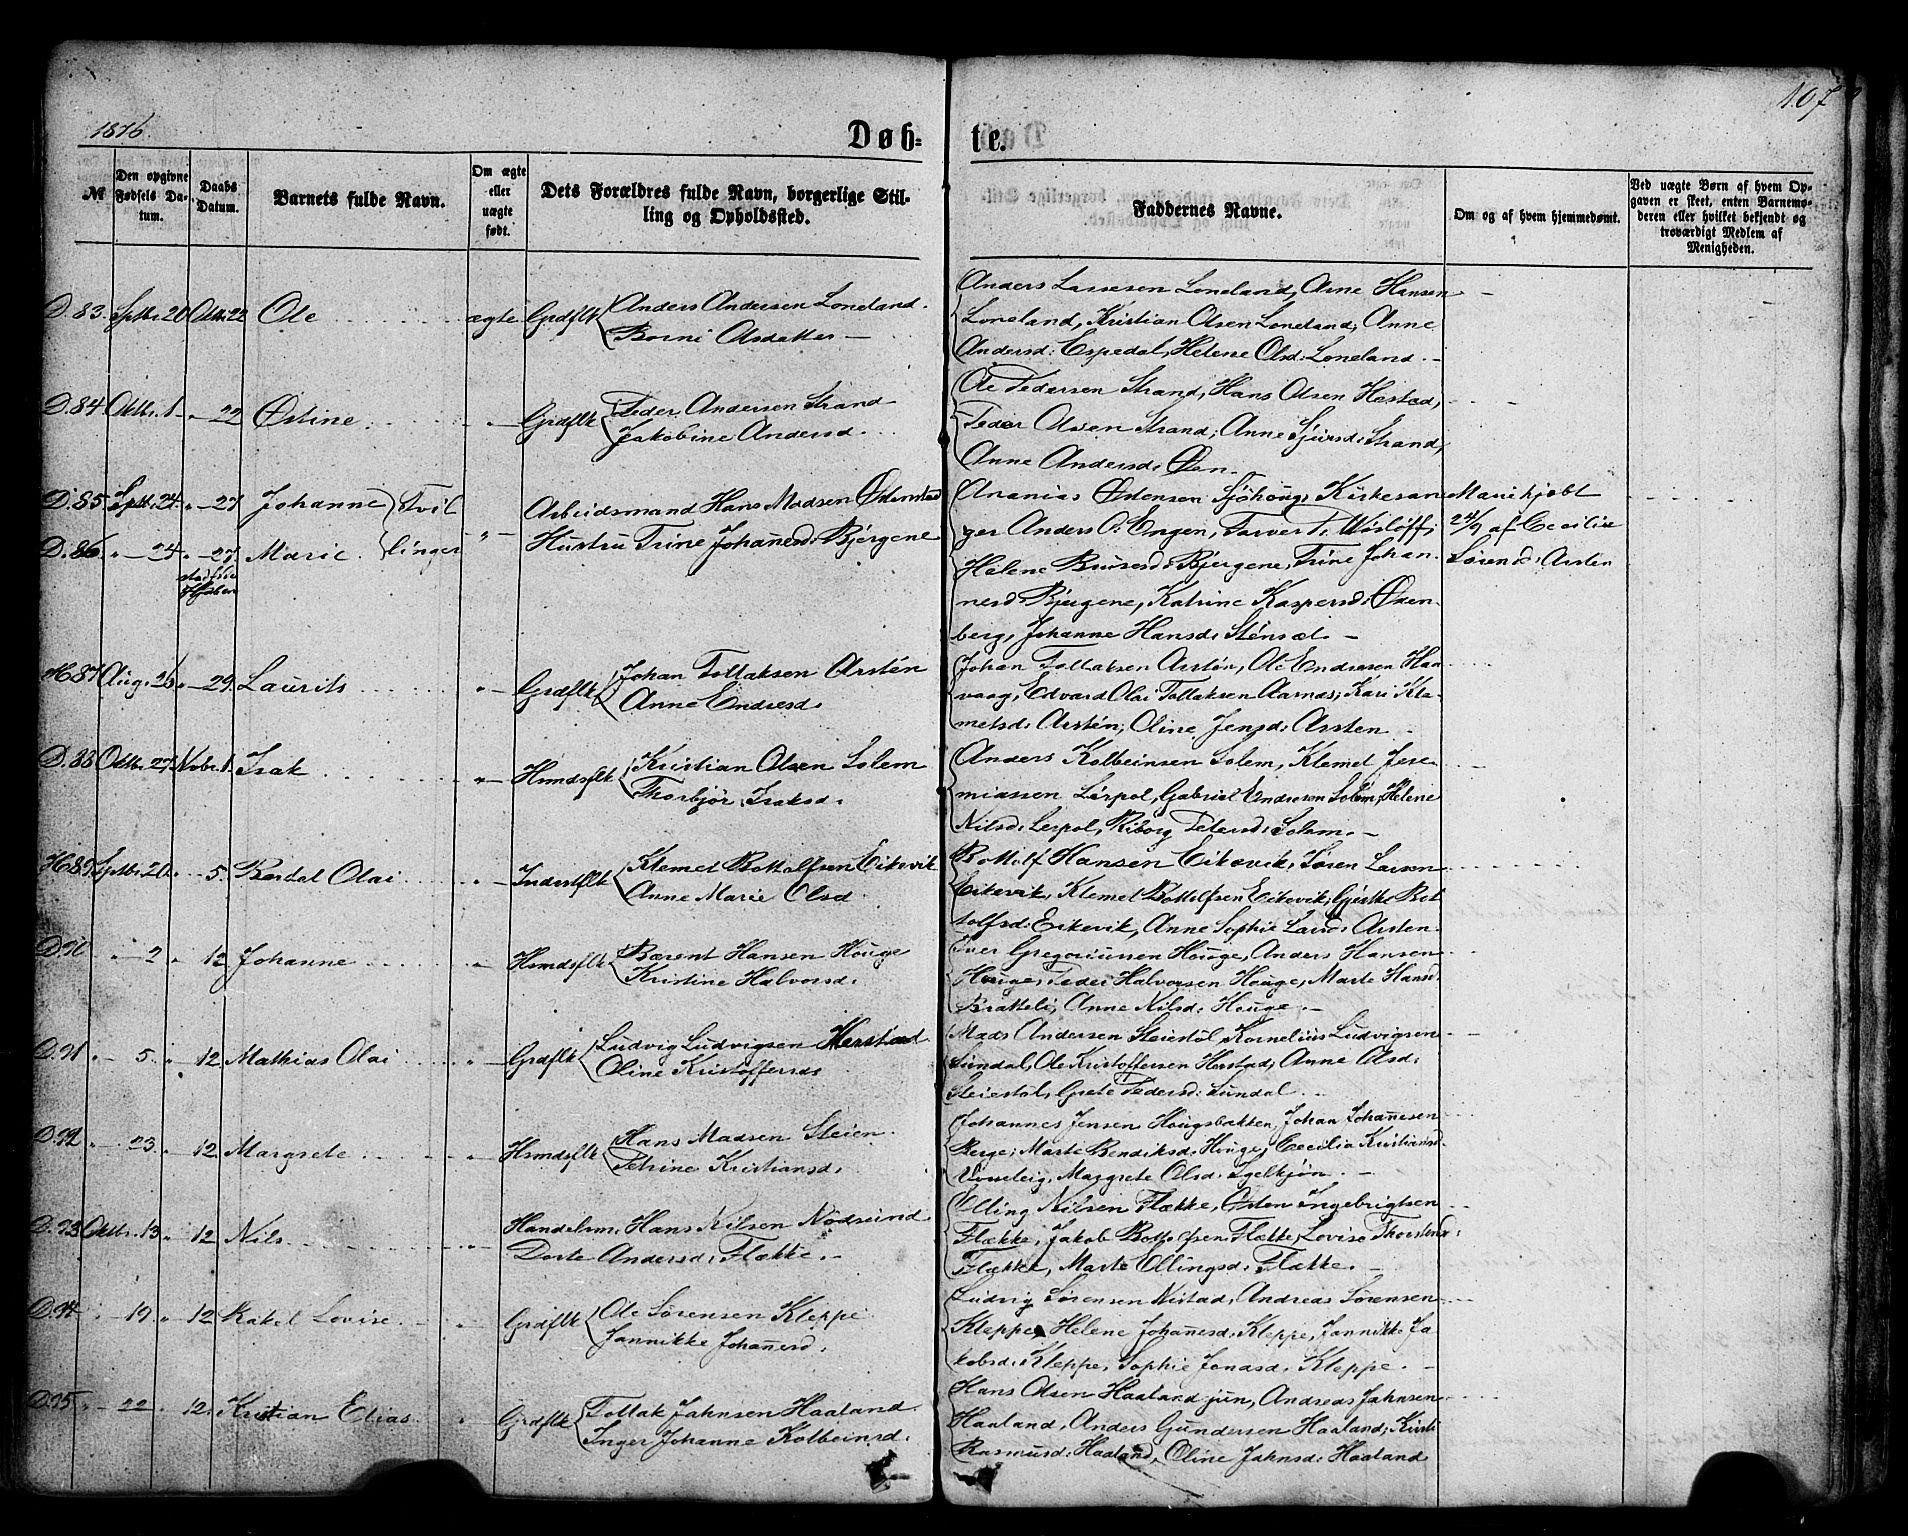 1876.
Døb-
te.
107
№
Den opgivne Fødsels Datum.
Daabs Datum.
Barnets fulde Navn.
Om ægte eller uægte født.
Dets Forældres fulde Navn, borgerlige Stilling og Opholdssted.
Faddernes Navne.
Om og af hvem hjemmedømt.
Ved uægte Børn af hvem Opgaven er skeet, enten Barnemoderen eller hvilket bekjendt og troværdigt Medlem af Menigheden.
D. 83. Septbr. 20 Oktbr. 22 Ole ægte Grdflk Anders Andersen Loneland.
Borni Olsdatter —
Anders Lassesen Loneland, Arne Hansen —
Loneland, Kristian Olsen Loneland, Anne
Andersd: Espedal, Helene Olsd: Loneland. —
D. 84 Oktbr. 1 " — 22 Østine " — Grdflk Peder Andersen Strand
Jakobine Andersd.
Ole Pedersen Strand, Hans Olsen Hæstad,
Peder Olsen Strand, Anne Sjursd: Strand,
Anne Andersd: Øen. —
D. 85. Septbr. 24. " — 27 Johanne Tvil
D. 86. " — 24 " — 27 Marie linger " —
Arbeidsmand Hans Madsen Østenstad
Hustru Trine Johanesd: Bjergene
Ananias Østensen Sjöhoug, Kirkesan
ger Anders O. Engen, Farver T. Wisløff,
Helene Brusesd: Bjergene, Trine Johan
nesd: Bjergene, Katrine Kaspersd: Østen
berg, Johanne Hansd: Stensæt —
Marie hjdbt
24/9 af Cecilie
Sørensd: Arsten
H. 87 Aug. 26 " — 29. Laurits " — Grdflk Johan Tollaksen Arstén
Anne Endresd.
Johan Tollaksen Arstén, Ole Endresen Haa
vaag, Edvard Olai Tollaksen Aarnæs, Kari Kle
metsd: Arstén, Oline Jensd: Arsten
D. 88 Oktbr. 27 Novbr. 1. Isak " — Hsmdsflk Kristian Olsen Solem
Thorbjør Isaksd.
Anders Kolbeinsen Solem, Klemet Jere
miassen Lerpol, Gabriel Endresen Solem, Helene
Nilsd: Lerpol, Riborg Petersd: Solem. —
H. 89. Septbr. 20. " — 5. Berdal Olai " — Inderstflk Klemet Bottolfsen Eikevik
Anne Marie Olsd
Bottolf Hansen Eikevik, Søren Larsen
Eikevik, Klemet Bottolfsen Eikevik, Gjertke Bot
tolfsd: Eikevik, Anne Sophie Larsd: Arsten
D. 90 " — 2 " 12 Johanne " Hsmdsflk Bærent Hansen Houge
Kristine Halvorsd.
Iver Gregoriussen Houge, Anders Hansen
Houge, Peder Halvorsen Houge, Marte Hansd:
Bratteli, Anne Nilsd: Houge. —
D. 91 " — 5 " 12 Mathias Olai " — Grdflk Ludvig Ludvigsen Herstad
Oline Kristoffersd
Mads Andersen Steiestøl, Kornelius Ludvigsen
Sundal, Ole Kristoffersen Herstad, Anne Olsd:
Steiestøl, Grete Pedersd: Sundal
D. 92 " — 23 " 12 Margrete " Hsmdsflk Hans Madsen Steien
Petrine Kristiansd.
Johannes Jensen Hougsbakken, Johan Johanesen
Berge, Marte Bendiksd: Houge, Cecilia Kristiansd:
Margrete Olsd: Igelkjøn. —
D. 93 Oktbr. 13 " 12 Nils " — Handelsm. Hans Nilsen Nødseund
Dorte Andersd: Flække. —
Elling Nilsen Flække, Østen Ingebrigtsen
Flække, Jakob Bottolfsen Flække, Lovise Thorstensd:
Flække, Marte Ellingsd: Flække. —
D. 94 " — 19 " 12 Rakel Lovise " Grdflk Ole Sørensen Kleppe
Jannikke Johanesd.
Ludvig Sørensen Nistad, Andreas Sørensen
Kleppe, Helene Johanesd: Kleppe, Jannikke Ja
kobsd: Kleppe, Sophie Jonasd: Kleppe. —
D. 95 " — 22 " 12. Kristian Elias " Grdflk Tollak Jahnsen Haaland
Inger Johanne Kolbeinsd.
Hans Olsen Haaland jun, Andreas Jahnsen
Haaland, Anders Gundersen Haaland, Kirsti
Rasmusd: Haaland, Oline Jahnsd: Haaland